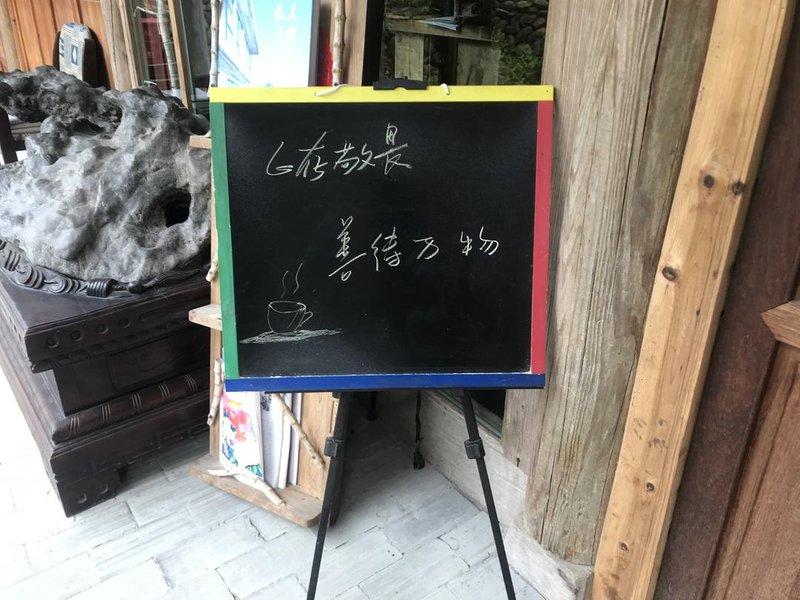 心存敬畏
善待万物